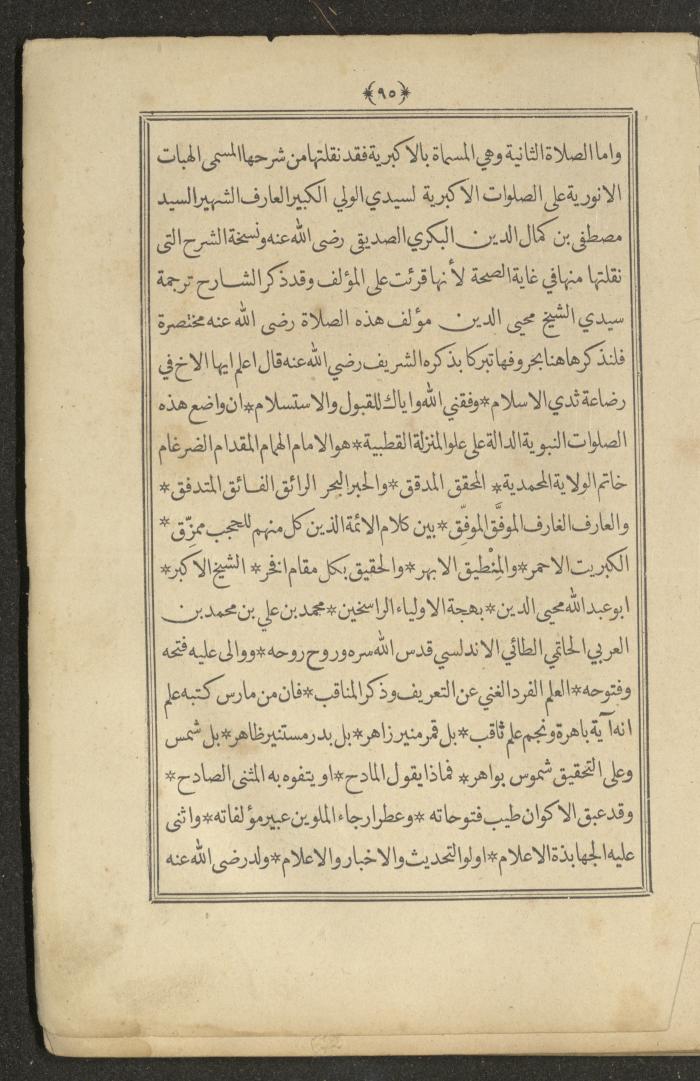 ﴿٩٥﴾
واما الصلاة الثانية وهي المسماة بالاكبرية فقد نقلتها من شرحها المسمى الهبات
الانورية على الصلوات الاكبرية لسيدي الولي الكبير العارف الشهير السيد
مصطفى بن كمال الدين البكري الصديقي رضى الله عنه ونسخة الشرح التى
نقلتها منها في غاية الصحة لأنها قرئت على المؤلف وقد ذكر الشارح ترجمة
سيدي الشيخ محيى الدين مؤلف هذه الصلاة رضى الله عنه مختصرة
فلنذكرها هنا بحروفها تبركا بذكره الشريف رضي الله عنه قال اعلم ايها الاخ في
رضاعة ثدي الاسلام * وفقني الله واياك للقبول والاستسلام * ان واضع هذه
الصلوات النبوية الدالة على علو المنزلة القطبية * هو الامام الهمام المقدام الضرغام
خاتم الولاية المحمدية * المحقق المدقق * والحبر البحر الرائق الفائق المتدفق *
والعارف الغارف الموفَّق الموفِّق * بين كلام الائمة الذين كل منهم للحجب ممزِّق *
الكبريت الاحمر * والمِنْطيق الابهر * والحقيق بكل مقام افخر * الشيخ الاكبر *
ابو عبد الله محيى الدين * بهجة الاولياء الراسخين * محمد بن علي بن محمد بن
العربي الحاتمي الطائي الاندلسي قدس الله سره وروح روحه * ووالى عليه فتحه
وفتوحه * العلم الفرد الغني عن التعريف وذكر المناقب * فان من مارس كتبه علم
انه آية باهرة ونجم علم ثاقب * بل قمر منير زاهر * بل بدر مستنير ظاهر * بل شمس
وعلى التحقيق شموس بواهر * فماذا يقول المادح * او يتفوه به المثنى الصادح *
وقد عبق الاكوان طيب فتوحاته * وعطر ارجاء الملوين عبير مؤلفاته * واثنى
عليه الجهابذة الاعلام * اولو التحديث والاخبار والاعلام * ولد رضى الله عنه